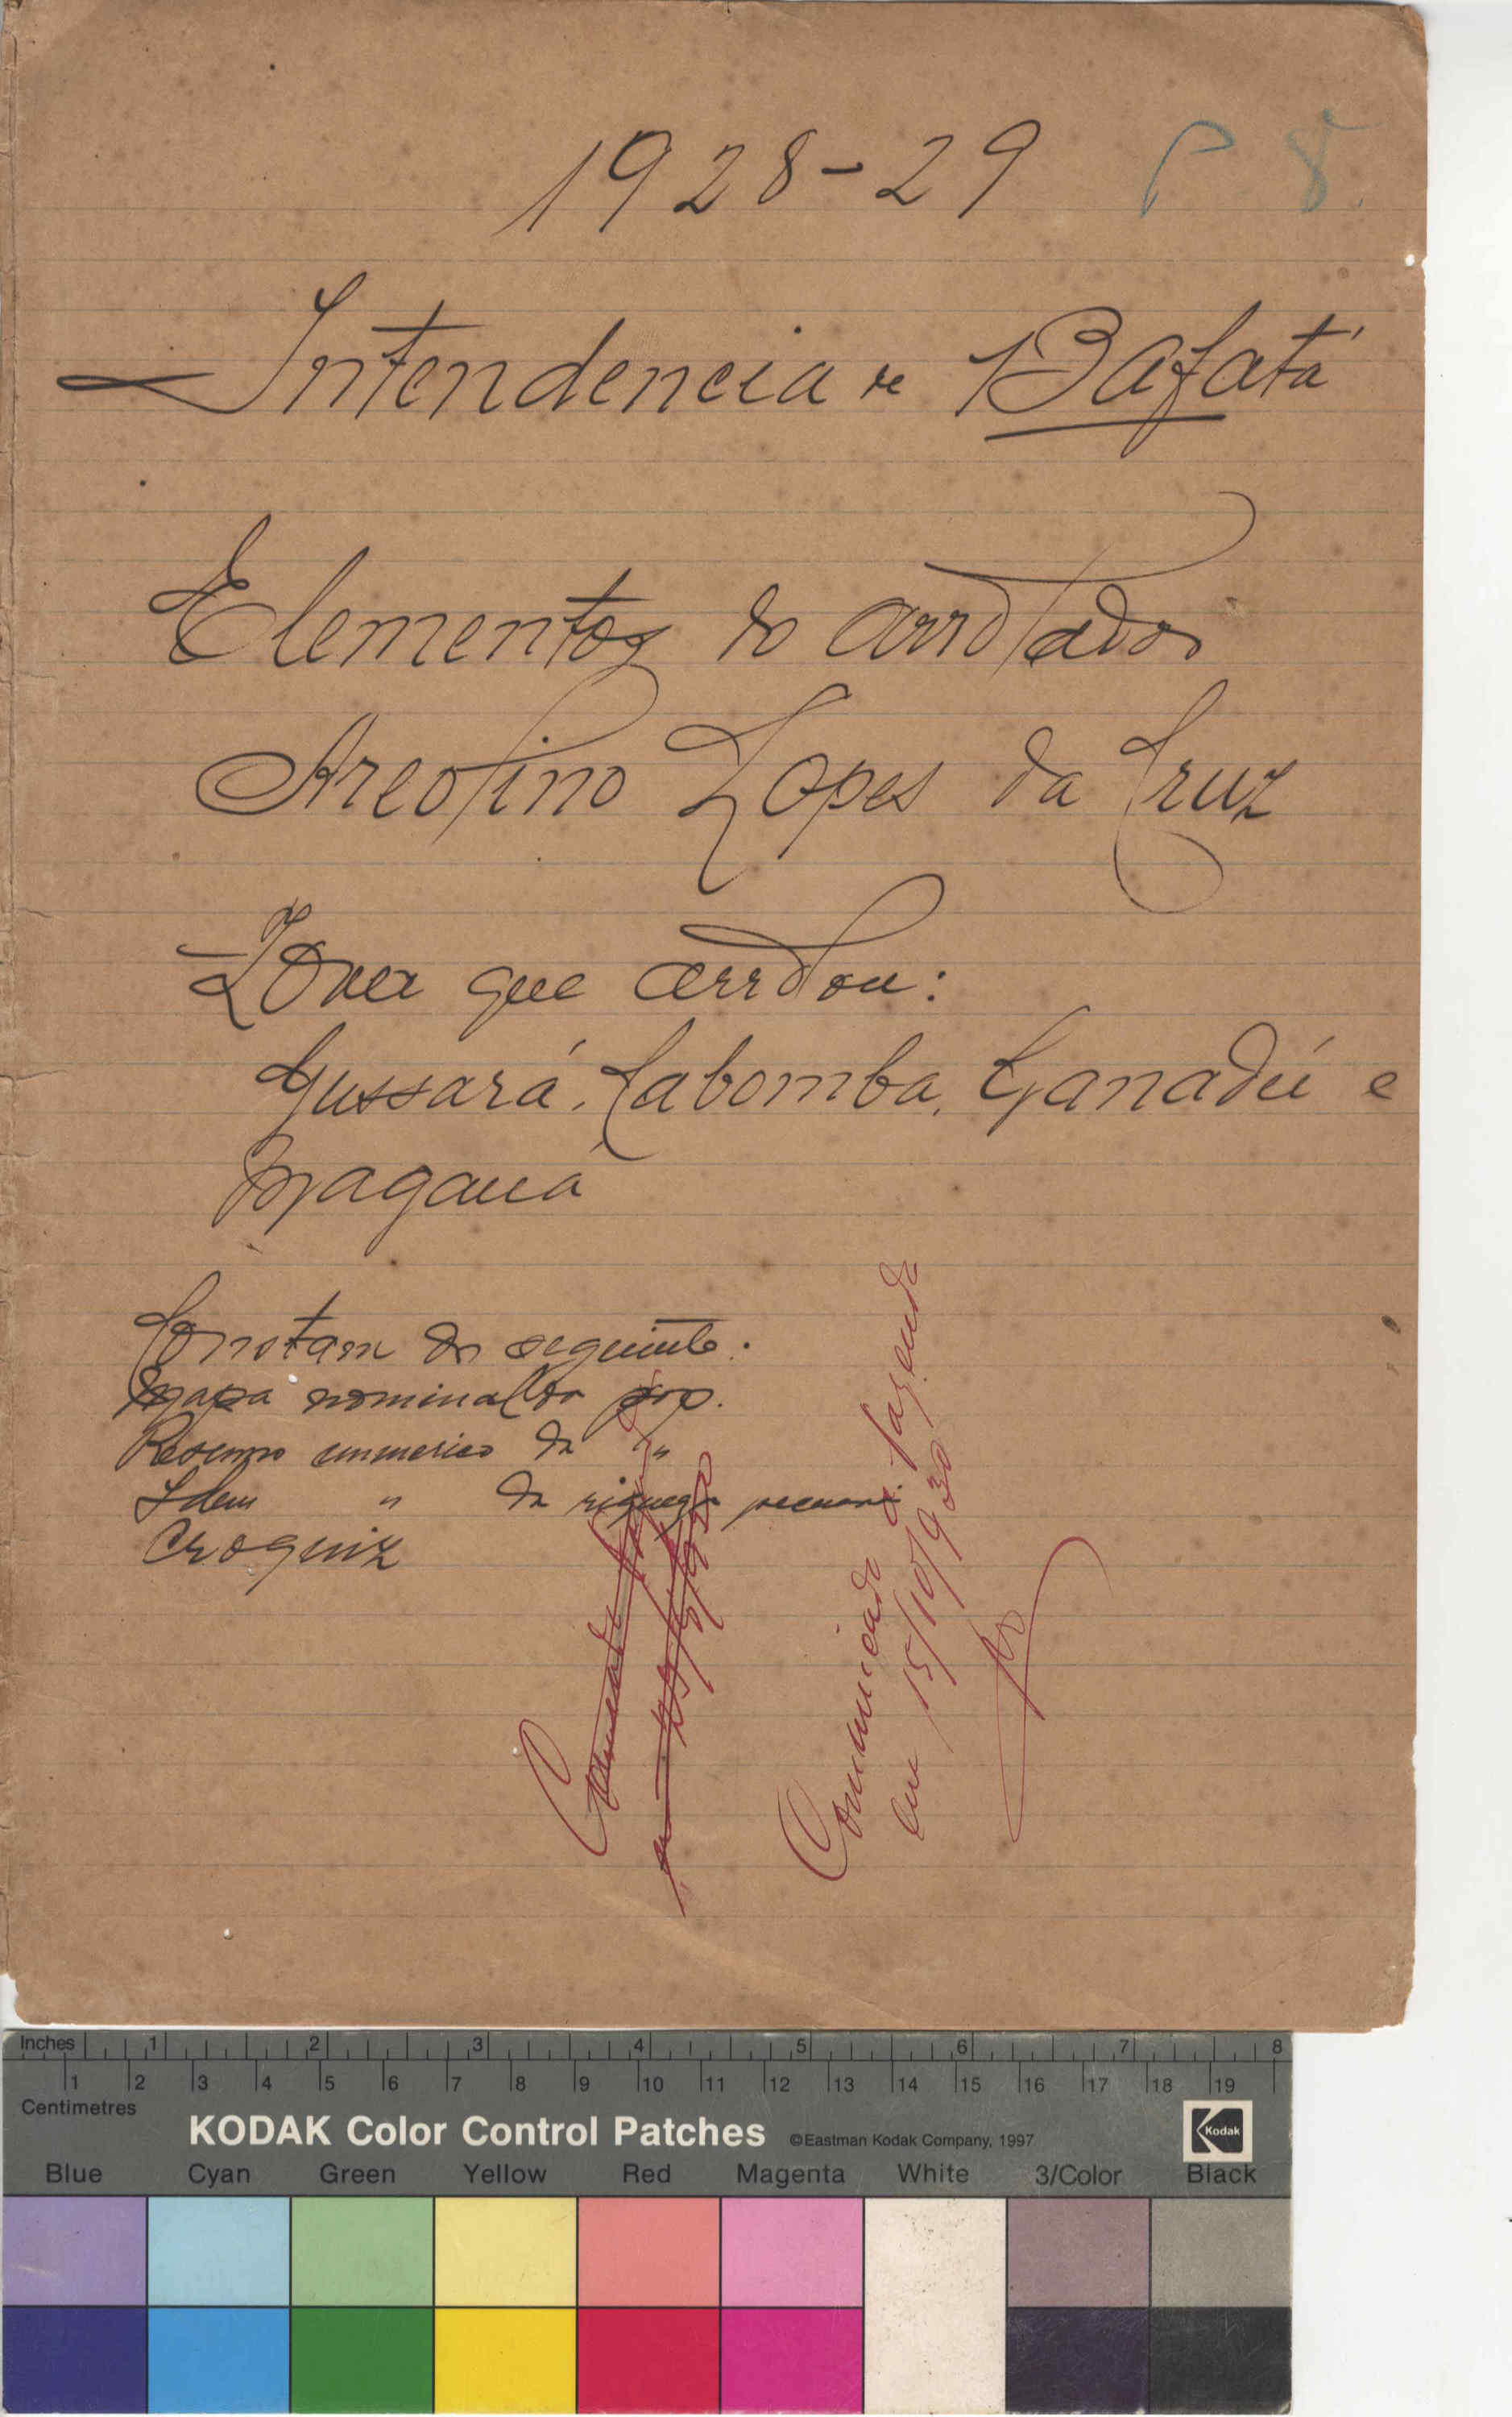 1928-29 P 8.
Intendencia de Bafatá
Elementos do arrolador
Areolino Lopes da Cruz
Zona que arrolou:
Gussará, Cabomba, Ganadú e
Maganá
Constam do seguinte:
Mapa nominal da pop.
Resumo numerico da "
Idem " da riqueza pecuaria
Croquiz
Comunicado á fazenda
em 15/10/930
Inches 1 2 3 4 5 6 7 8
1 2 3 4 5 6 7 8 9 10 11 12 13 14 15 16 17 18 19
Centimetres
KODAK Color Control Patches ©Eastman Kodak Company, 1997 Kodak
Blue Cyan Green Yellow Red Magenta White 3/Color Black